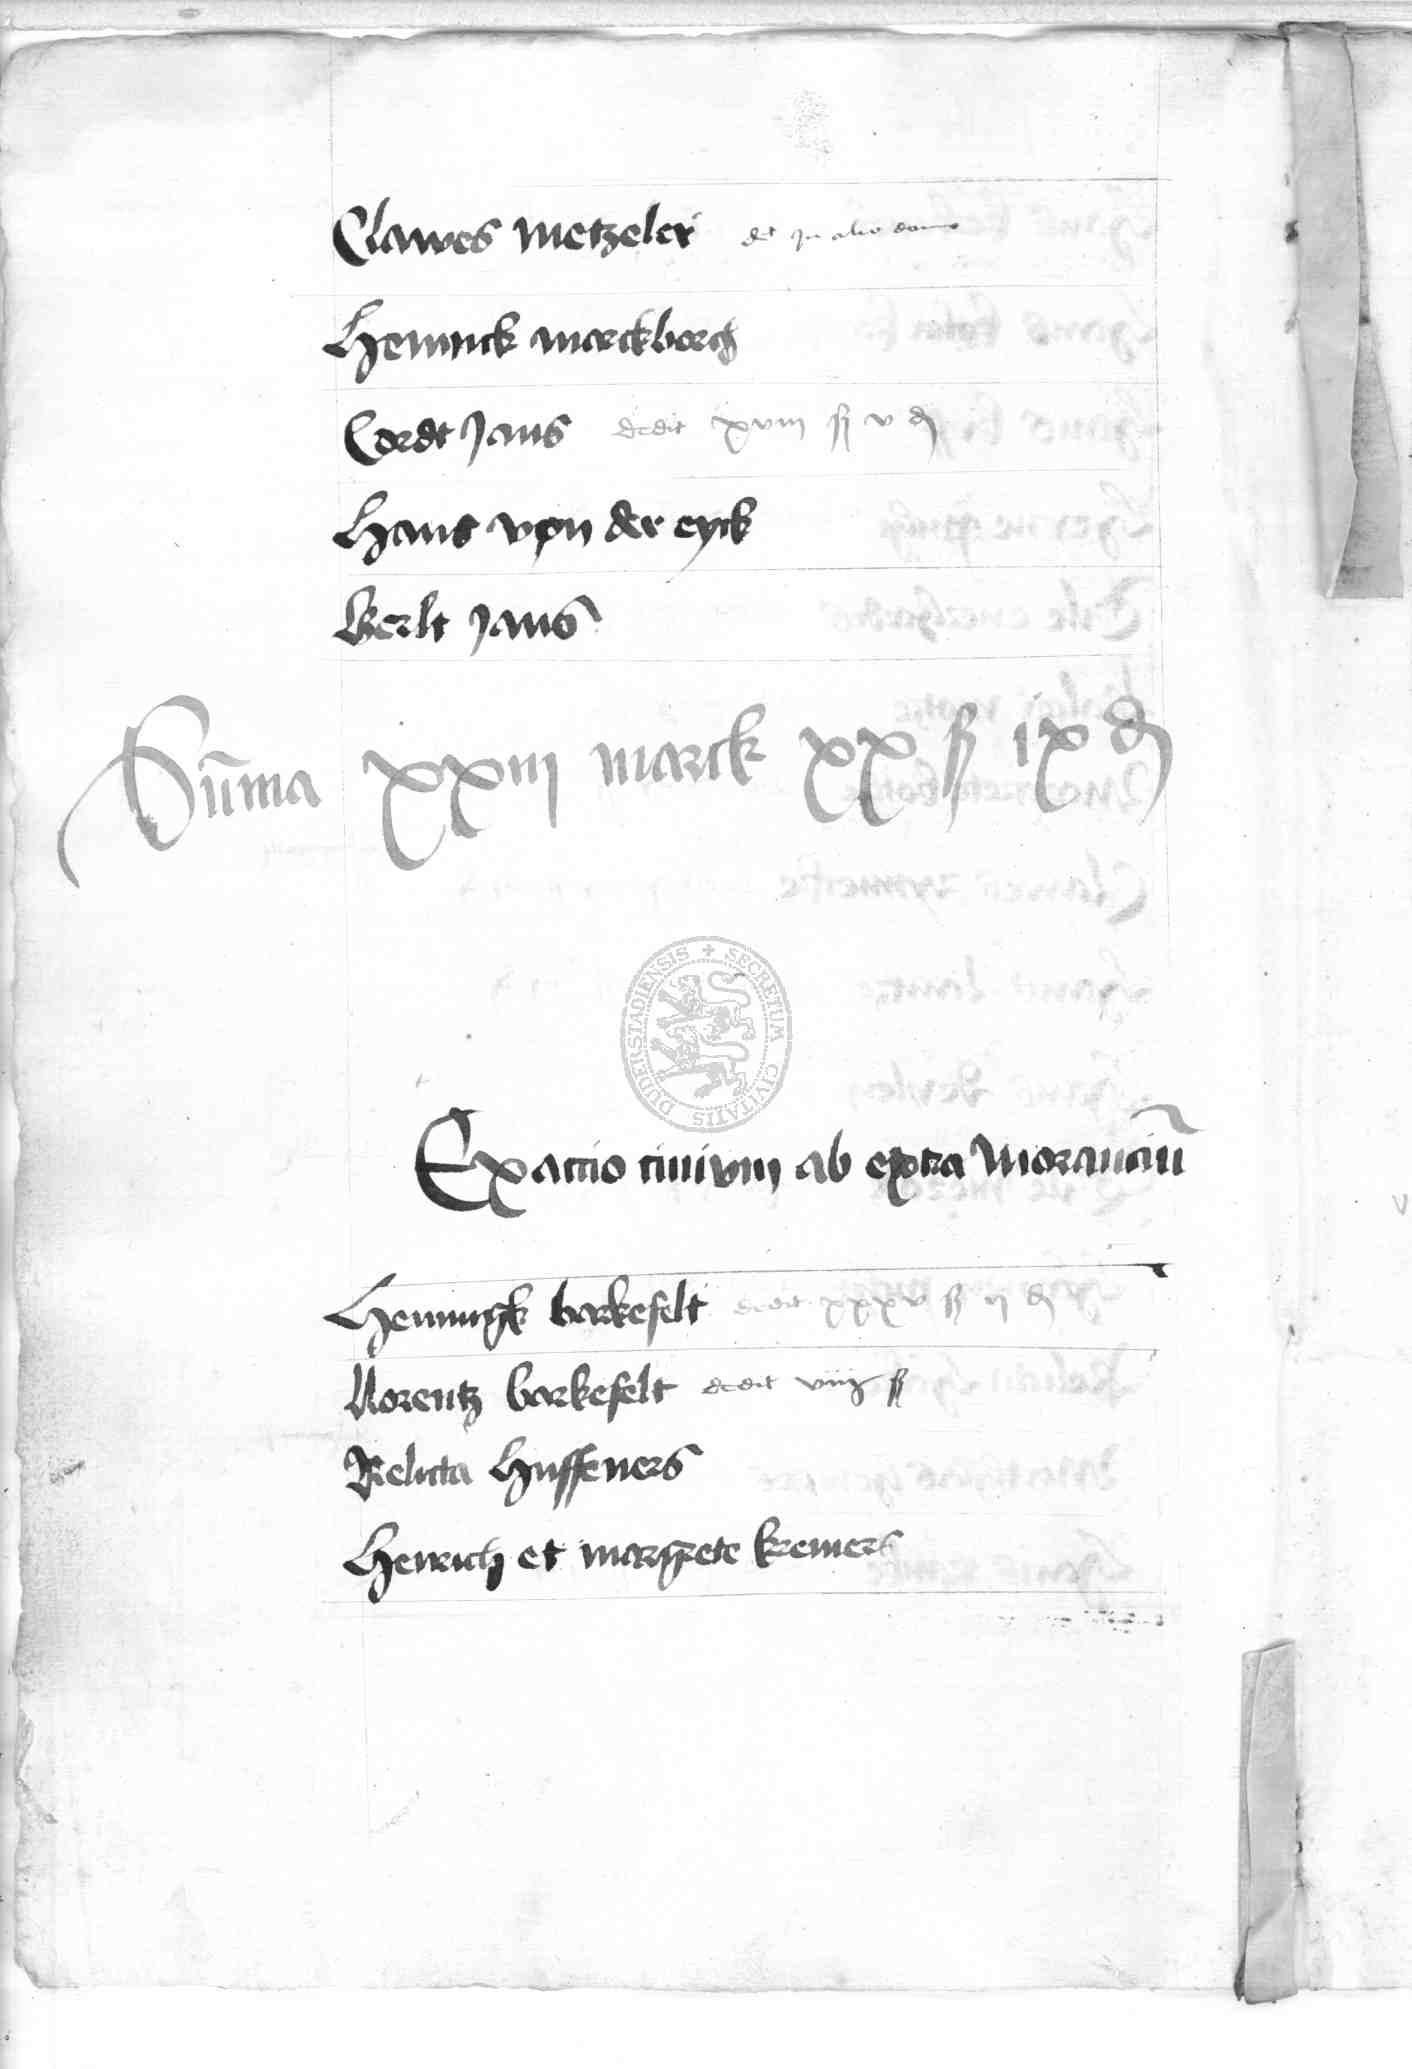 Clawes metzeler det in alio domo
Henninck marckborch
Cordt Jans dedit xviii ß v d
Hans von der eyck
Berlt Jans
Sum̄a xxiii marck xx ß ix d
SECRETUM CIVITATIS DUDERSTADIENSIS
Exactio civivm ab extra Moranciū
Henningk barkefelt dedit xxxv ß ii d
Lorentz barkefelt dedit viiij ß
Relicta Huffeners
Henrich et margrete kremers